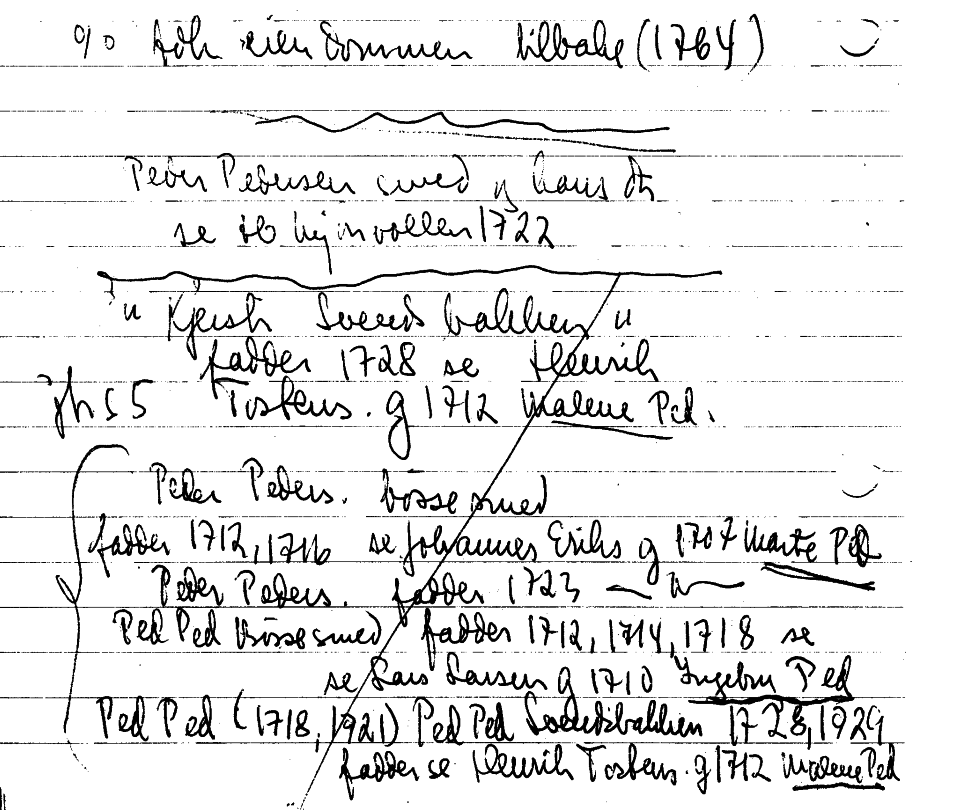 eiendommen tilbake (1764)
Peder Pedersen smed og hans
se 1722
" Kjersti Svendsbakken "
fadder 1728 se Henrik
Tostens. g 1712 Malene Ped.
Peder Peders. bösse smed
fadder 1712, 1716 se Johannes Eriks g 1707 Marte Ped
Peder Peders. fadder 1723 — " —
Ped Ped bössesmed fadder 1712, 1714, 1718 se
se Lars Larsen g 1710 Ingebor Ped
Ped Ped (1718, 1921) Ped Ped Svendsbakken 1728, 1929
fadder se Henrik Tostens. g 1712 Malene Ped